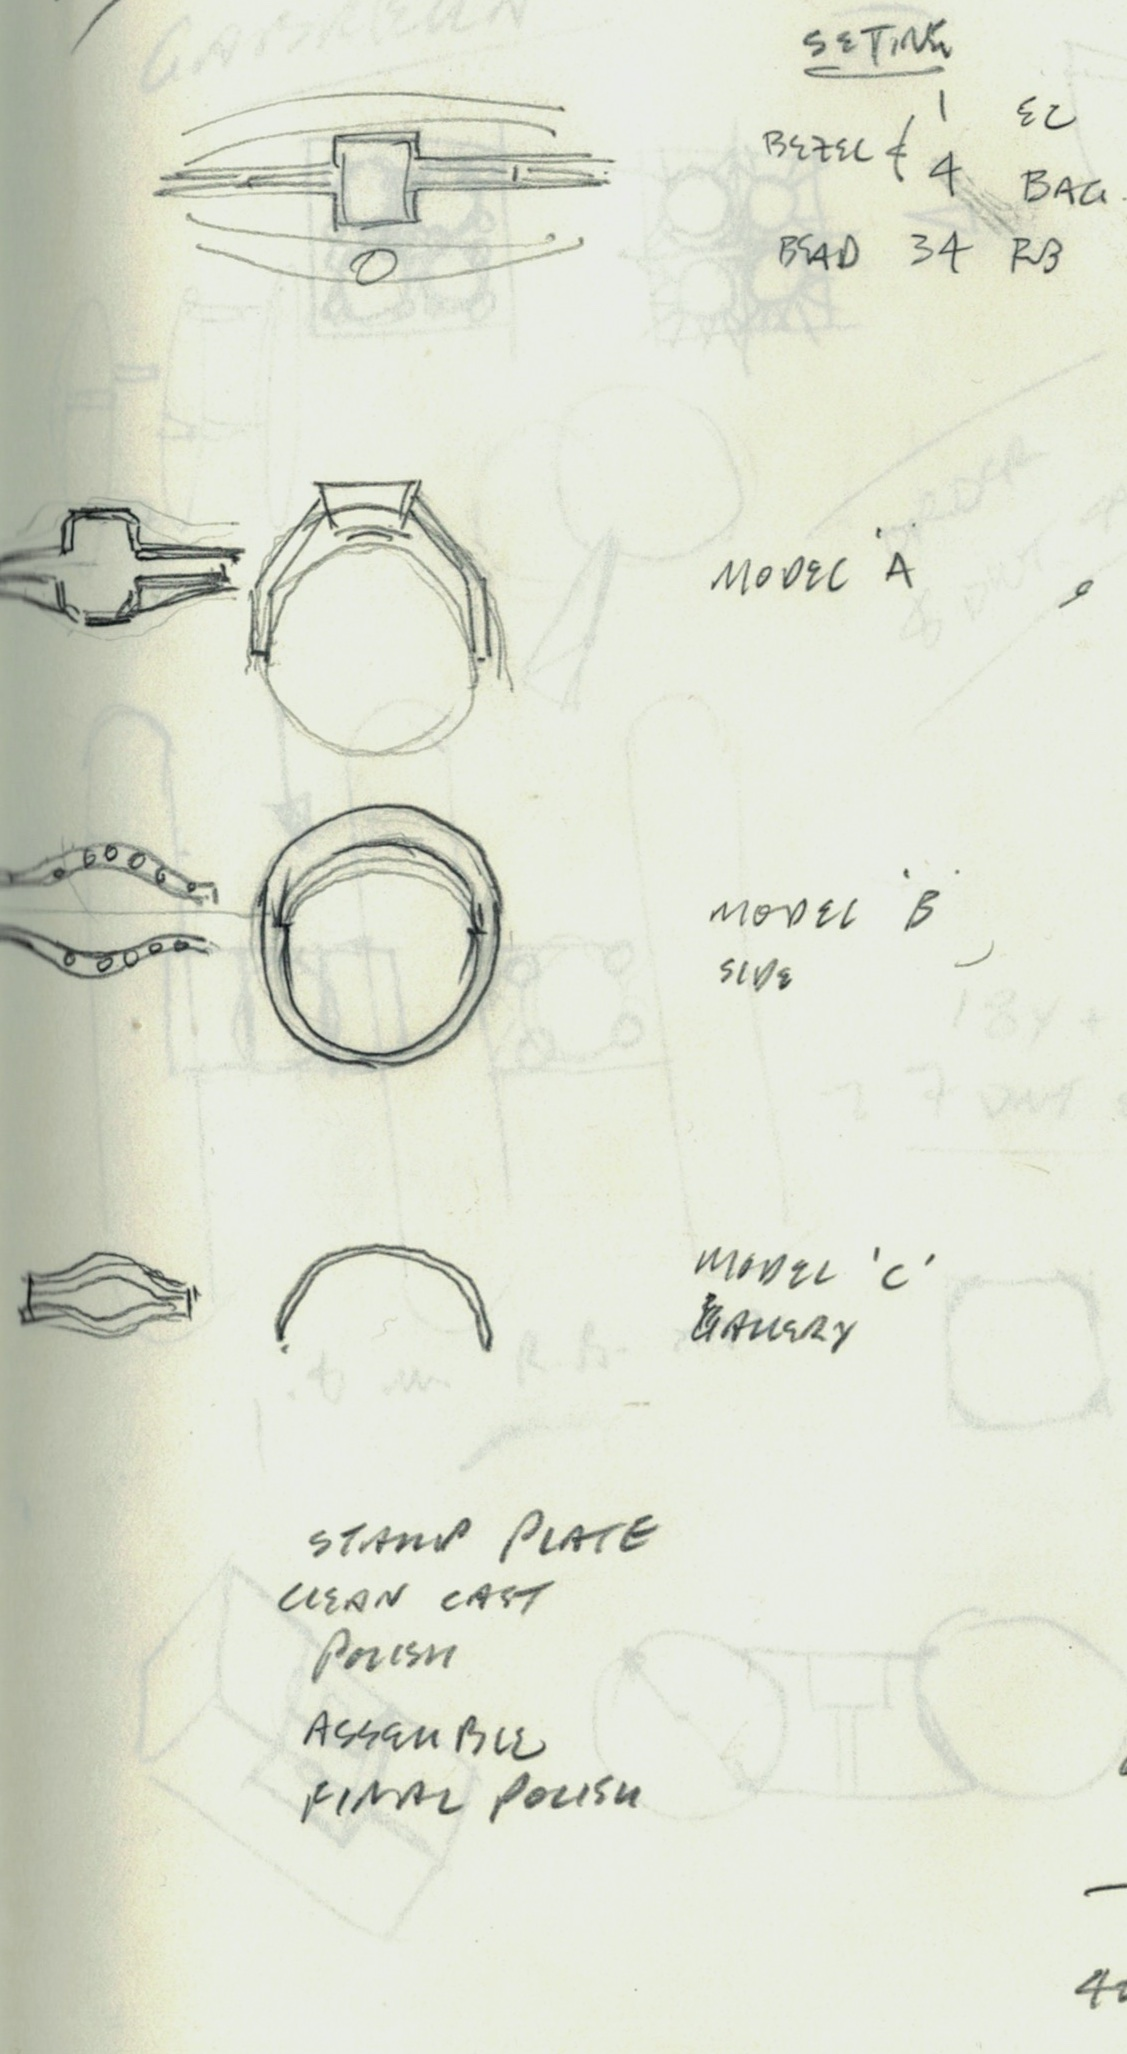 SETING
BEZEL { 1 EC
4 BAG.
BEAD 34 RB
MODEL 'A'
MODEL 'B'
SIDE
18Y +
7 DWT
MODEL 'C'
GALLERY
STAMP PLATE
CLEAN CAST
POLISH
ASSEMBLE
FINAL POLISH